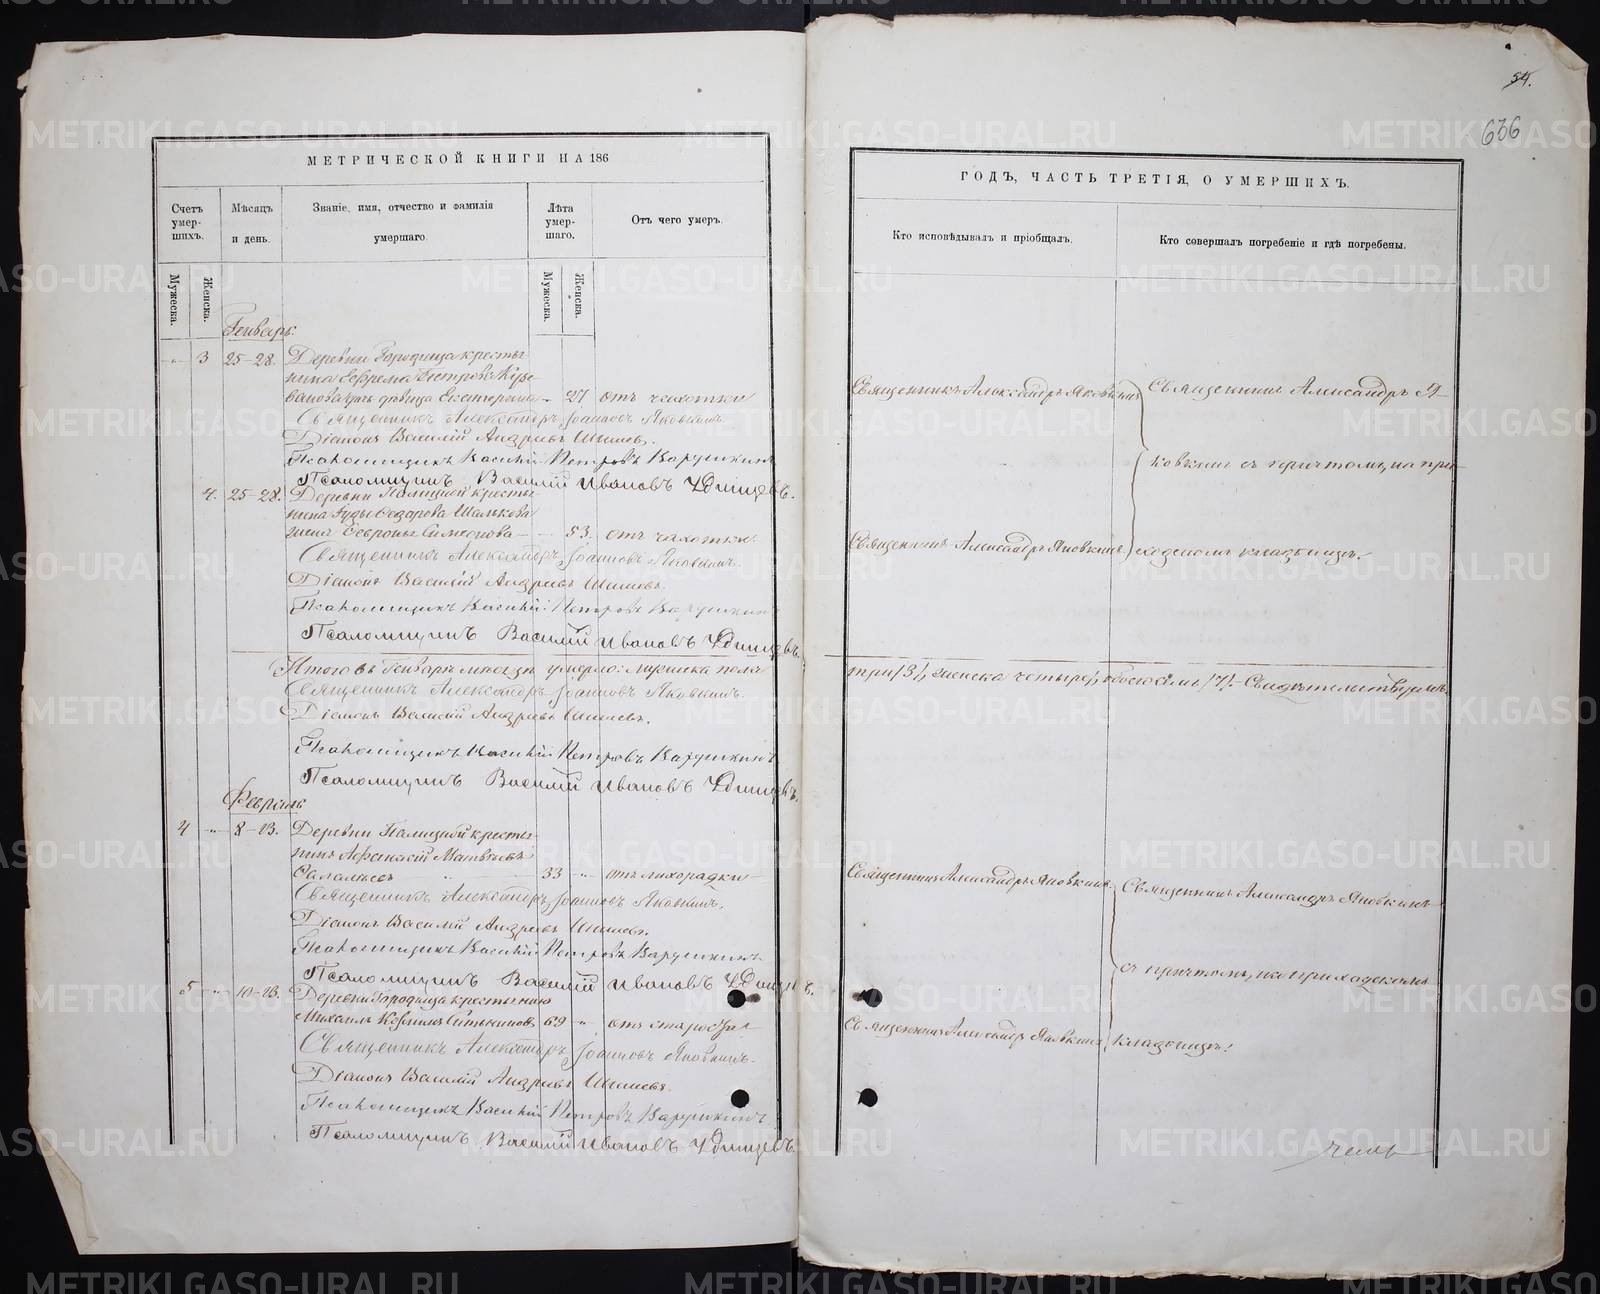 54.
636
МЕТРИЧЕСКОЙ КНИГИ НА 186
Счетъ умер-шихъ.
Мѣсяцъ и день.
Званіе, имя, отчество и фамилія умершаго.
Лѣта умер-шаго.
Отъ чего умеръ.
Мужеска.
Женска.
Мужеска.
Женска.
Генварь:
3 25-28. Деревни Городища кресть-
янина Ефрема Петрова
дѣвица Екатерина 27 отъ чахотки
Священникъ Александръ Іоанновъ Яковкинъ.
Діаконъ Василій Андреевъ Шишевъ.
Псаломщикъ Василій Петровъ Варушкинъ
Псаломщикъ Василій Ивановъ Удинцевъ.
4. 25-28. Деревни Палициной кресть-
янина Ѳедорова
жена Симеонова 53. отъ чахотки
Священникъ Александръ Іоанновъ Яковкинъ.
Діаконъ Василій Андреевъ Шишевъ.
Псаломщикъ Василій Петровъ Варушкинъ
Псаломщикъ Василій Ивановъ Удинцевъ.
Итого въ Генварѣ мѣсяцѣ умерло: мужеска пола
Священникъ Александръ Іоанновъ Яковкинъ.
Діаконъ Василій Андреевъ Шишевъ.
Псаломщикъ Василій Петровъ Варушкинъ
Псаломщикъ Василій Ивановъ Удинцевъ.
Февраль
4 8-13. Деревни Палициной кресть-
янинъ Афанасій Матвѣевъ
33 отъ лихорадки
Священникъ Александръ Іоанновъ Яковкинъ.
Діаконъ Василій Андреевъ Шишевъ.
Псаломщикъ Василій Петровъ Варушкинъ
Псаломщикъ Василій Ивановъ Удинцевъ.
5 10-13. Деревни Городища крестьянинъ
Михаилъ 69 отъ старости
Священникъ Александръ Іоанновъ Яковкинъ.
Діаконъ Василій Андреевъ Шишевъ.
Псаломщикъ Василій Петровъ Варушкинъ
Псаломщикъ Василій Ивановъ Удинцевъ.
ГОДЪ, ЧАСТЬ ТРЕТІЯ, О УМЕРШИХЪ.
Кто исповѣдывалъ и пріобщалъ.
Кто совершалъ погребеніе и гдѣ погребены.
Священникъ Александръ Яковкинъ
Священникъ Александръ Я-
ковкинъ съ причтомъ, на при-
Священникъ Александръ Яковкинъ
ходскомъ кладбищѣ.
три /3/, женска четыре, обоего семь /7/. Свидѣтельствуемъ.
Священникъ Александръ Яковкинъ
Священникъ Александръ Яковкинъ
съ причтомъ, на приходскомъ
Священникъ Александръ Яковкинъ
кладбищѣ.
METRIKI.GASO-URAL.RU